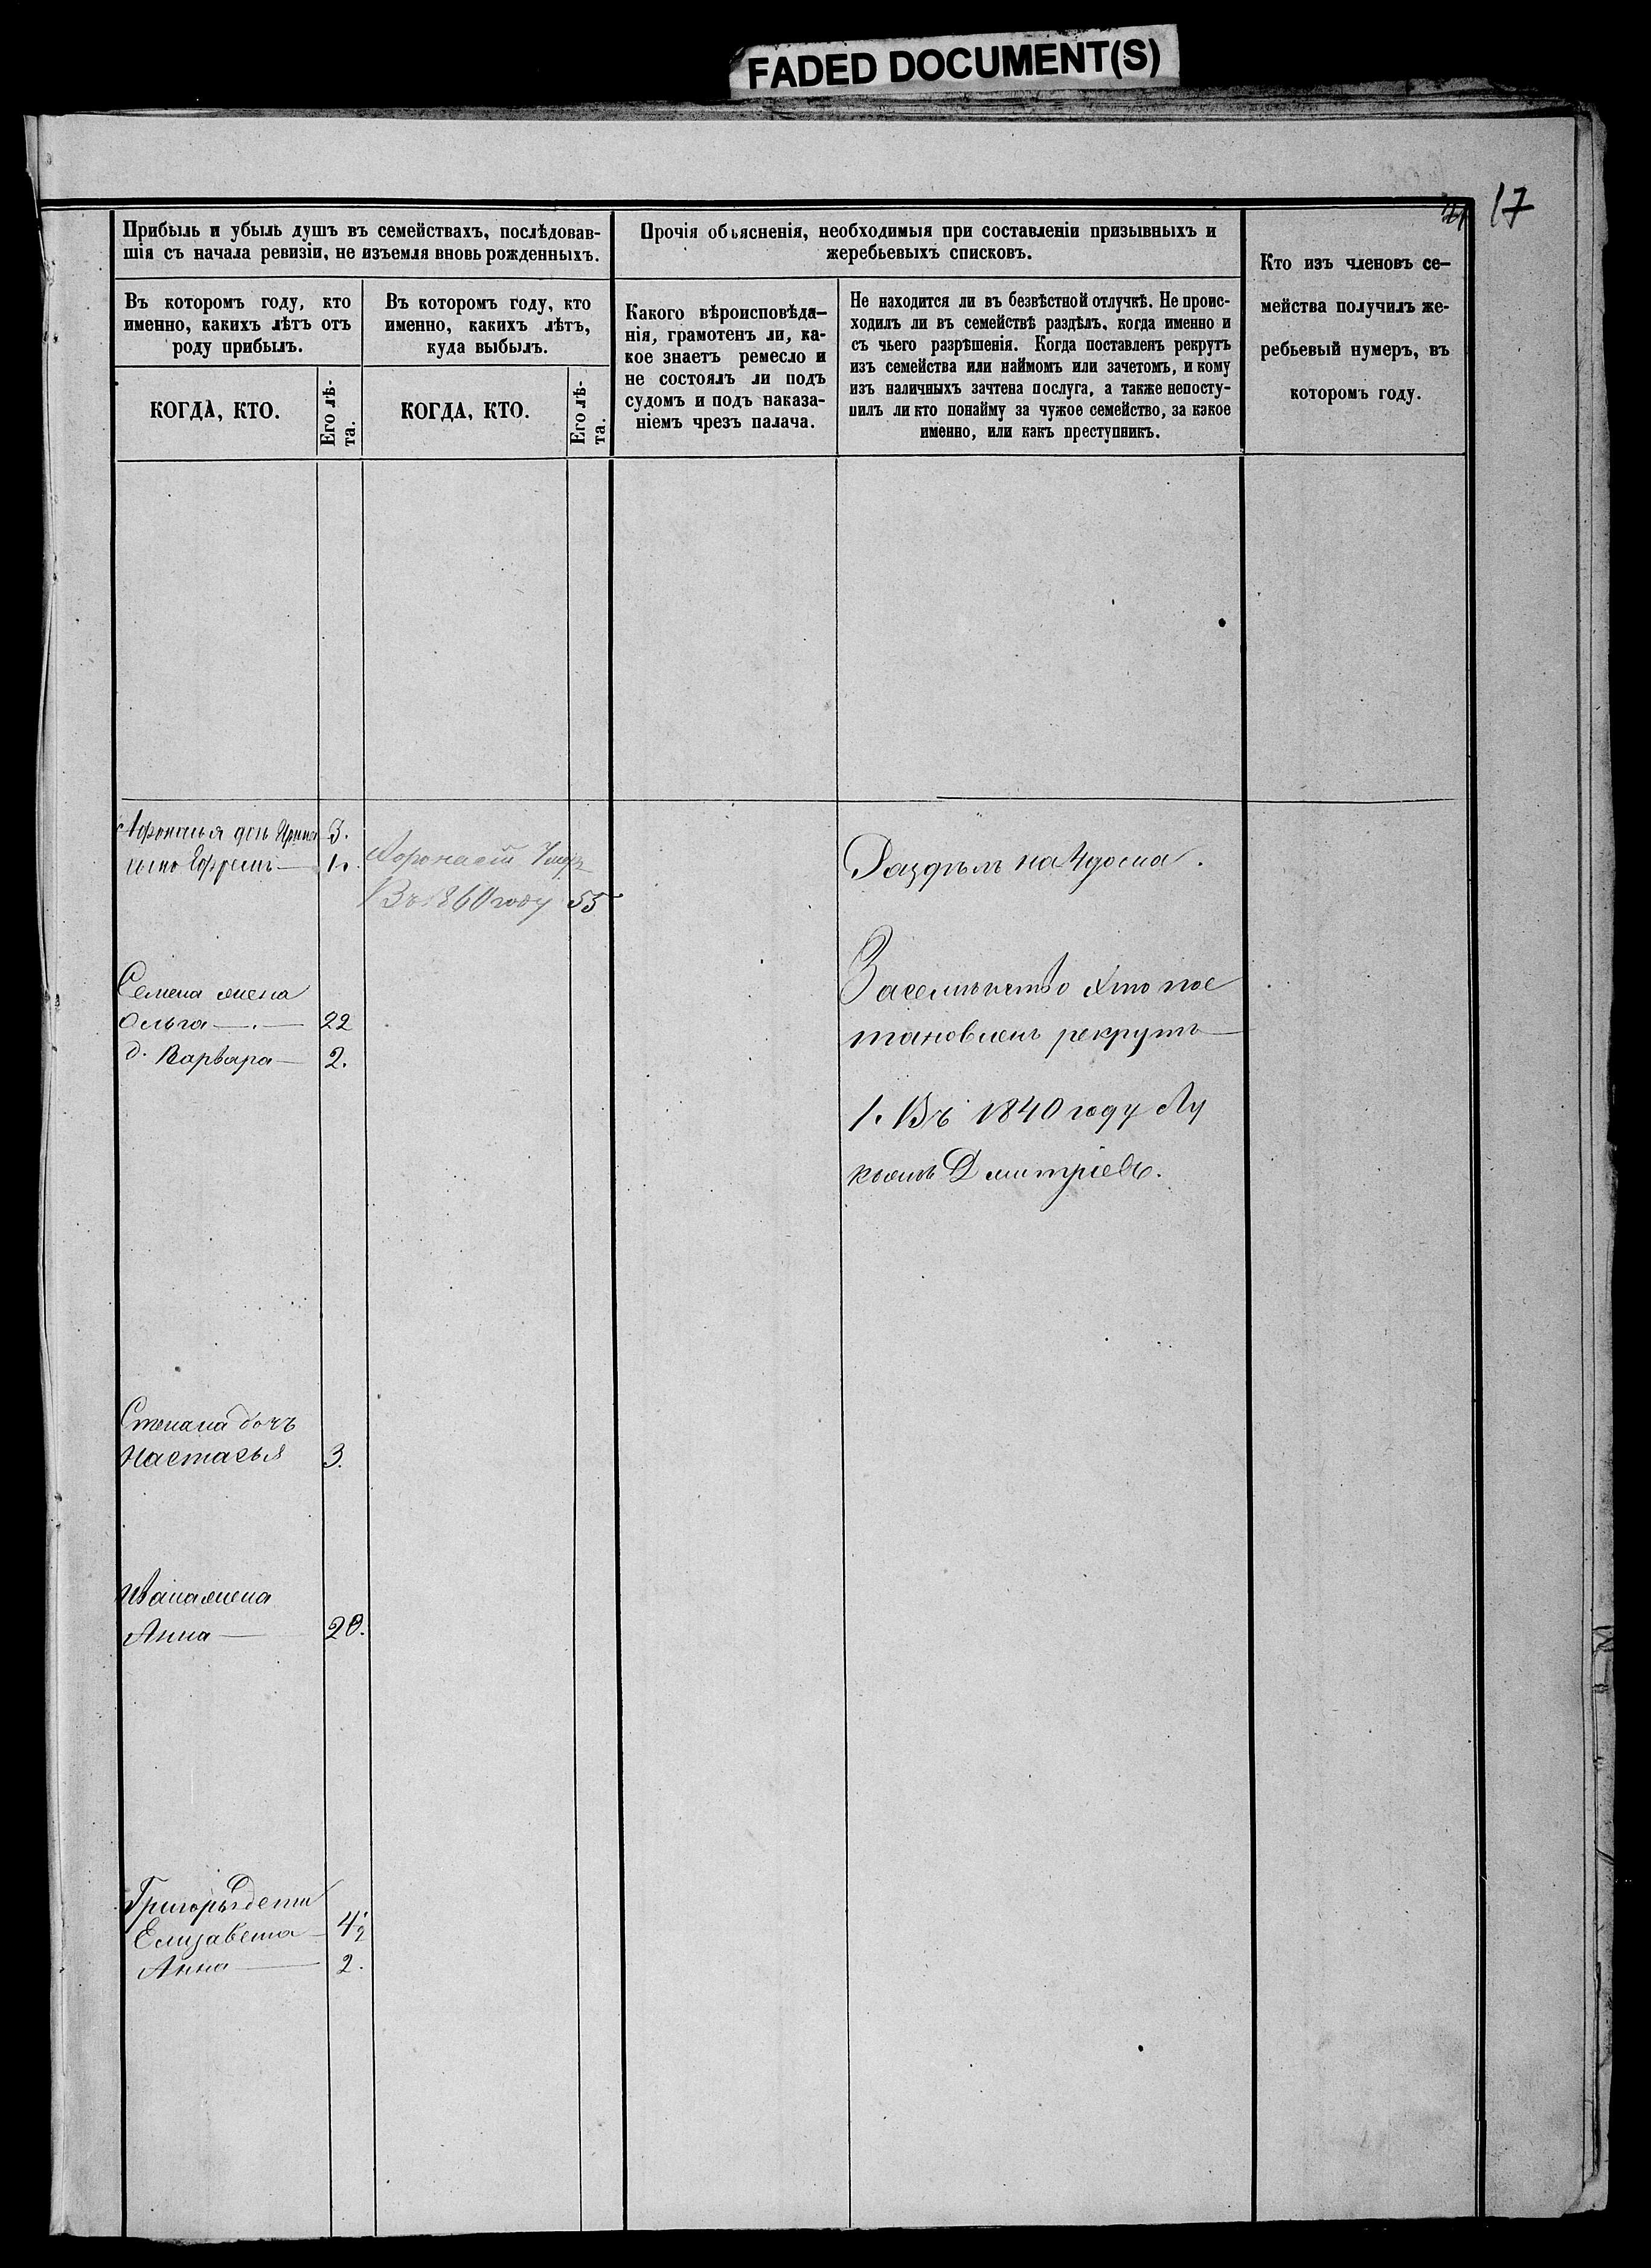 FADED DOCUMENT(S)
17
Прибыль и убыль душъ въ семействахъ, послѣдовав-
шія съ начала ревизіи, не изъемля вновь рожденныхъ.
Въ которомъ году, кто
именно, какихъ лѣтъ отъ
роду прибылъ.
КОГДА, КТО.
Его лѣ-
та.
Въ которомъ году, кто
именно, какихъ лѣтъ,
куда выбылъ.
КОГДА, КТО.
Его лѣ-
та.
Прочія объясненія, необходимыя при составленіи призывныхъ и
жеребьевыхъ списковъ.
Какого вѣроисповѣда-
нія, грамотенъ ли, ка-
кое знаетъ ремесло и
не состоялъ ли подъ
судомъ и подъ наказа-
ніемъ чрезъ палача.
Не находится ли въ безвѣстной отлучкѣ. Не проис-
ходилъ ли въ семействѣ раздѣлъ, когда именно и
съ чьего разрѣшенія. Когда поставленъ рекрутъ
изъ семейства или наймомъ или зачетомъ, и кому
изъ наличныхъ зачтена послуга, а также непосту-
пилъ ли кто понайму за чужое семейство, за какое
именно, или какъ преступникъ.
Кто изъ членовъ се-
мейства получилъ же-
ребьевый нумеръ, въ
которомъ году.
Афонасья 3.
Ефремъ 1.
Афонасій Умеръ
Въ 1860 году 55
Раздѣлъ на 4 дома.
Семена жена
Ольга 22
д. Варвара 2.
За семѣйство Хто пос
тановленъ рекрутъ
1. Въ 1840 году Лу
кьянъ Дмитріевъ.
Степана дочъ
Настасья 3.
Ивана жена
Анна 20.
Григорья дети
Елизавета 4 1/2
Анна 2.